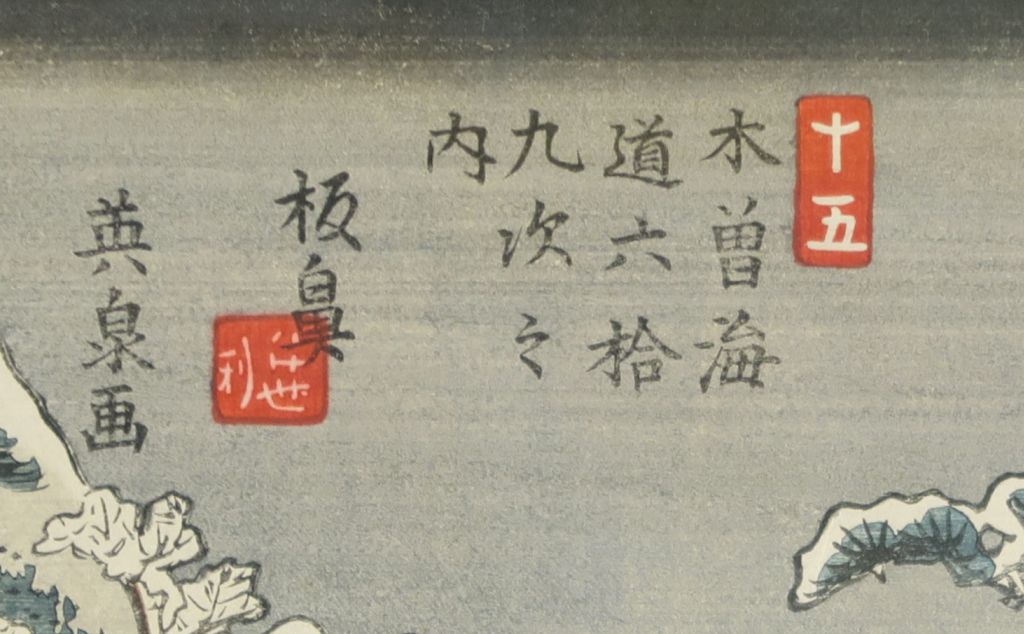 十五
木曽海
道六拾
九次之
内
板鼻
世
利
英泉画